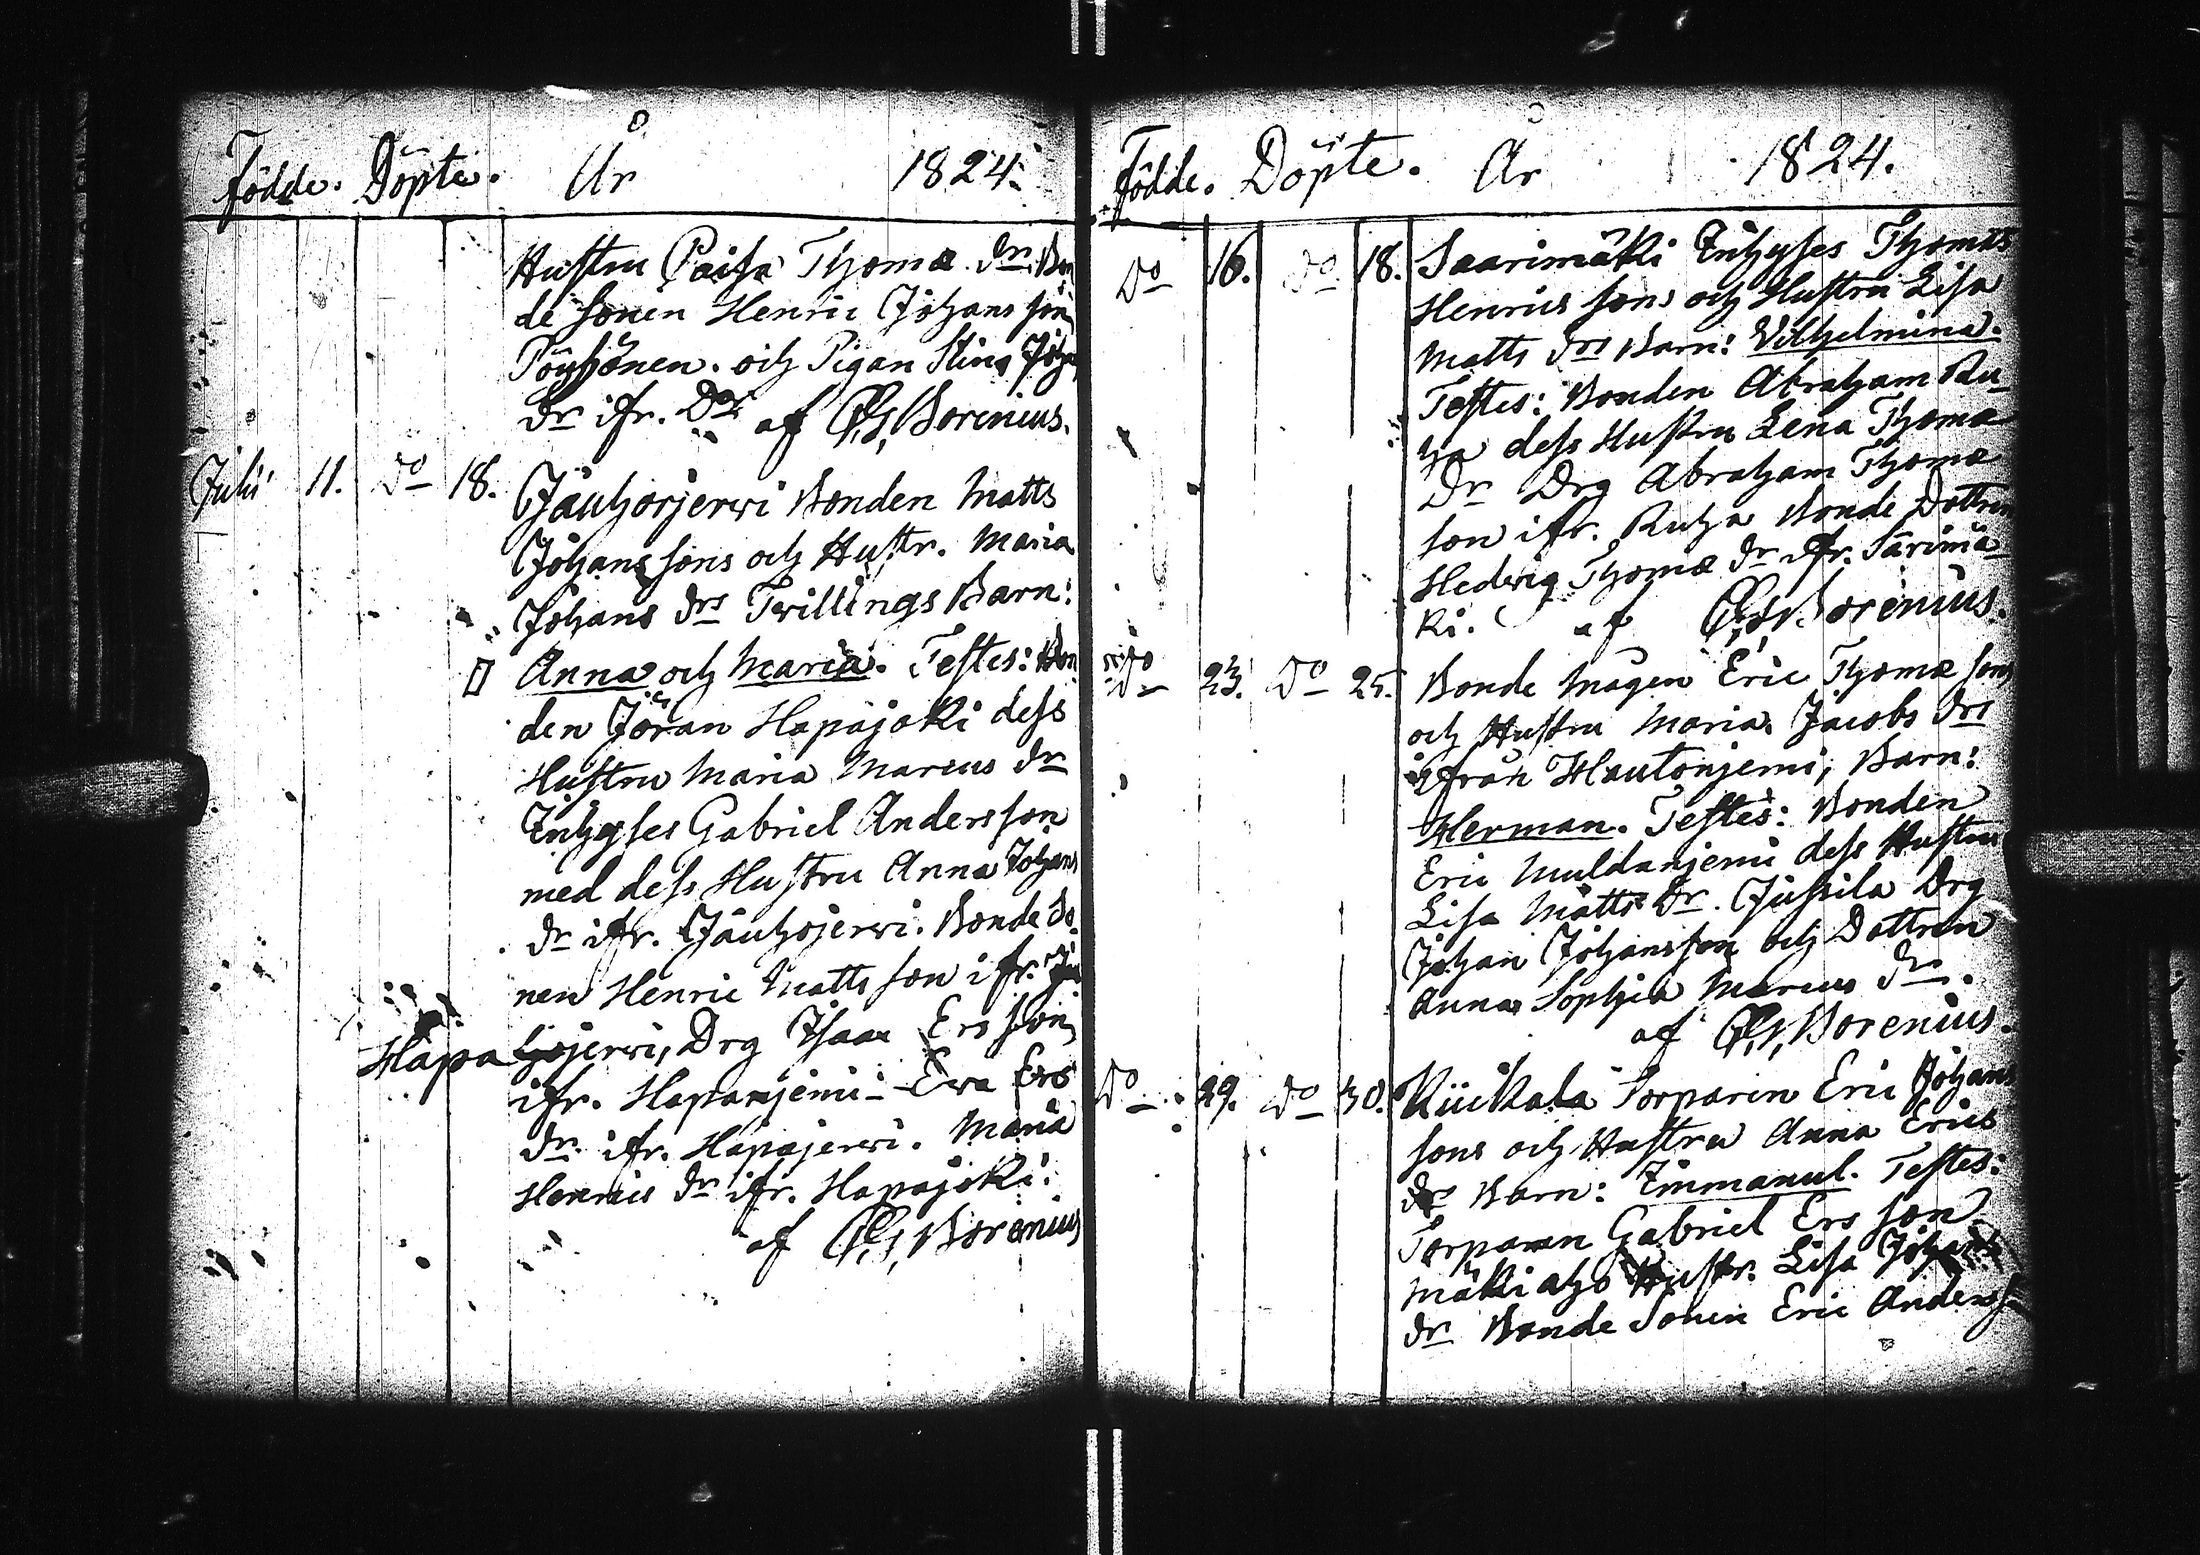 Födde. Döpte. År 1824.
Hustru Caisa Thomæ dr. Bon
de Sonen Henric Johans son
Pöyhönen. och Pigan Stina Joha
dr ifr. Do af C. G. Borenius.
Julii 11. Do 18. Jäuhojerwi Bonden Matts
Johans sons och Hustr. Maria
Johans drs Twillings Barn:
Anna och Maria. Testes: Bon
den Jöran Hapajoki dess
Hustru Maria Marcus dr
Inhyses Gabriel Andersson
med dess Hustru Anna Johans
dr ifr. Jäuhojerwi. Bonde So
nen Henric Matts son ifr. Jäu
Hapa hojerwi, Drg Isaac Ers son
ifr. Hapanjemi Ewa Ers
dr. ifr. Hapajerwi. Maria
Henrics dr ifr. Hapajoki.
af C. G. Borenius
Födde. Döpte. År 1824.
Do 16. Do 18. Saarimäki Inhyses Thomas
Henrics sons och Hustru Lisa
Matts drs Barn: Wilhelmina.
Testes: Bonden Abraham Ru
ha dess Hustru Lena Thomæ
Dr Drg Abraham Thomæ
son ifr. Ruha Bonde Dottren
Hedwig Thomæ dr ifr. Sarimä
ki. af C. G. Borenius.
Do 23. Do 25. Bonde Mågen Eric Thomæ sons
och Hustru Maria Jacobs drs
ifrån Hautonjemi, Barn:
Herman. Testes: Bonden
Eric Muldanjemi dess Hustru
Lisa Matts Dr. Jussila Drg
Johan Johansson och Dottren
Anna Sophia Marcus dr.
af C. G. Borenius.
Do 29. Do 30. Kiukala Torparen Eric Johans
sons och Hustru Anna Erics
drs Barn: Immanul. Testes:
Torparen Gabriel Ers son
Mäkiaho Hustr. Lisa Johans
dr Bonde Sonen Eric Anders s